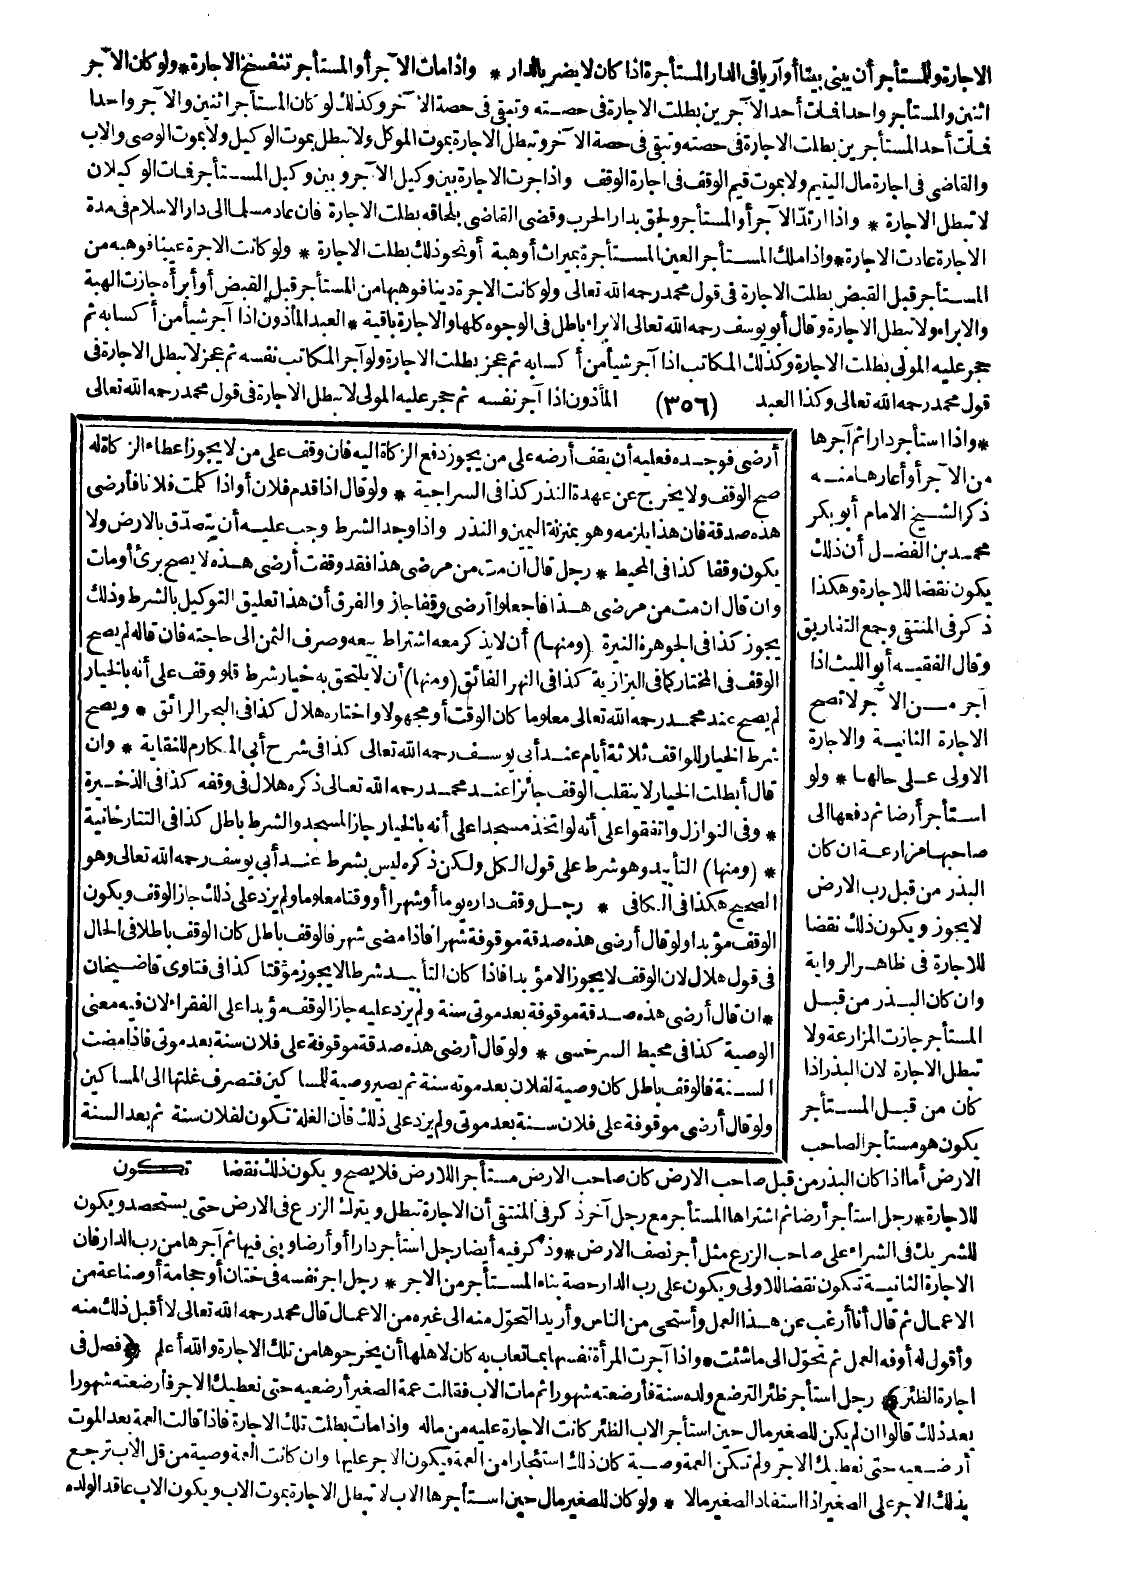 الاجارة وللمستأجر أن يبنى بيتا أو آريا فى الدار المستأجرة اذا كان لا يضر بالدار * واذا مات الآجر أو المستأجر تنفسخ الاجارة * ولو كان الآجر
اثنين والمستأجر واحدا فمات أحد الآجرين بطلت الاجارة فى حصته وتبقى فى حصة الآخر وكذلك لو كان المستأجر اثنين والآجر واحدا
فمات أحد المستأجرين بطلت الاجارة فى حصته وتبقى فى حصة الآخر وتبطل الاجارة بموت الموكل ولا تبطل بموت الوكيل ولا بموت الوصى والاب
والقاضى فى اجارة مال اليتيم ولا بموت قيم الوقف فى اجارة الوقف واذا جرت الاجارة بين وكيل الآجر وبين وكيل المستأجر فمات الوكيلان
لا تبطل الاجارة * واذا ارتد الآجر أو المستأجر ولحق بدار الحرب وقضى القاضى بلحاقه بطلت الاجارة فان عاد مسلما الى دار الاسلام فى مدة
الاجارة عادت الاجارة * واذا ملك المستأجر العين المستأجرة بميراث أو هبة أو نحو ذلك بطلت الاجارة * ولو كانت الاجرة عينا فوهبه من
المستأجر قبل القبض بطلت الاجارة فى قول محمد رحمه الله تعالى ولو كانت الاجرة دينا فوهبها من المستأجر قبل القبض أو أبرأه جازت الهبة
والابراء ولا تبطل الاجارة وقال أبو يوسف رحمه الله تعالى الابراء باطل فى الوجوه كلها والاجارة باقية * العبد المأذون اذا آجر شيأ من أكسابه ثم
حجر عليه المولى بطلت الاجارة وكذلك المكاتب اذا آجر شيأ من أكسابه ثم عجز بطلت الاجارة ولو آجر المكاتب نفسه ثم عجز لا تبطل الاجارة فى
قول محمد رحمه الله تعالى وكذا العبد (٣٥٦) المأذون اذا آجر نفسه ثم حجر عليه المولى لا تبطل الاجارة فى قول محمد رحمه الله تعالى
* واذا استأجر دارا ثم آجرها
من الآجر أو أعارها منه
ذكر الشيخ الامام أبو بكر
محمد بن الفضل أن ذلك
يكون نقضا للاجارة وهكذا
ذكر فى المنتقى وجمع التفاريق
وقال الفقيه أبو الليث اذا
آجر من الآجر لا تصح
الاجارة الثانية والاجارة
الاولى على حالها * ولو
استأجر أرضا ثم دفعها الى
صاحبها مزارعة ان كان
البذر من قبل رب الارض
لا يجوز ويكون ذلك نقضا
للاجارة فى ظاهر الرواية
وان كان البذر من قبل
المستأجر جازت المزارعة ولا
تبطل الاجارة لان البذر اذا
كان من قبل المستأجر
يكون هو مستأجر الصاحب
أرضى فوجده فعليه أن يقف أرضه على من يجوز دفع الزكاة اليه فان وقف على من لا يجوز اعطاء الزكاة له
صح الوقف ولا يخرج عن عهدة النذر كذا فى السراجية * ولو قال اذا قدم فلان أو اذا كلمت فلانا فأرضى
هذه صدقة فان هذا يلزمه وهو بمنزلة اليمين والنذر واذا وجد الشرط وجب عليه أن يتصدق بالارض ولا
يكون وقفا كذا فى المحيط * رجل قال ان مت من مرضى هذا فقد وقفت أرضى هذه لا يصح برئ أو مات
وان قال ان مت من مرضى هذا فاجعلوا أرضى وقفا جاز والفرق أن هذا تعليق التوكيل بالشرط وذلك
يجوز كذا فى الجوهرة النيرة (ومنها) أن لا يذكر معه اشتراط بيعه وصرف الثمن الى حاجته فان قاله لم يصح
الوقف فى المختار كما فى البزازية كذا فى النهر الفائق (ومنها) أن لا يلتحق به خيار شرط فلو وقف على أنه بالخيار
لم يصح عند محمد رحمه الله تعالى معلوما كان الوقت أو مجهولا واختاره هلال كذا فى البحر الرائق * ويصح
شرط الخيار للواقف ثلاثة أيام عند أبى يوسف رحمه الله تعالى كذا فى شرح أبى المكارم للنقاية * وان
قال أبطلت الخيار لا ينقلب الوقف جائزا عند محمد رحمه الله تعالى ذكره هلال فى وقفه كذا فى الذخيرة
* وفى النوازل واتفقوا على أنه لو اتخذ مسجدا على أنه بالخيار جاز المسجد والشرط باطل كذا فى التتارخانية
* (ومنها) التأبيد وهو شرط على قول الكل ولكن ذكره ليس بشرط عند أبى يوسف رحمه الله تعالى وهو
الصحيح هكذا فى الكافى * رجل وقف داره يوما أو شهرا أو وقتا معلوما ولم يزد على ذلك جاز الوقف ويكون
الوقف مؤبدا ولو قال أرضى هذه صدقة موقوفة شهرا فاذا مضى شهر فالوقف باطل كان الوقف باطلا فى الحال
فى قول هلال لان الوقف لا يجوز الا مؤبدا فاذا كان التأبيد شرطا لا يجوز مؤقتا كذا فى فتاوى قاضيخان
* ان قال أرضى هذه صدقة موقوفة بعد موتى سنة ولم يزد عليه جاز الوقف مؤبدا على الفقراء لان فيه معنى
الوصية كذا فى محيط السرخسى * ولو قال أرضى هذه صدقة موقوفة على فلان سنة بعد موتى فاذا مضت
السنة فالوقف باطل كان وصية لفلان بعد موته سنة ثم يصير وصية للمساكين فتصرف غلتها الى المساكين
ولو قال أرضى موقوفة على فلان سنة بعد موتى ولم يزد على ذلك فان الغلة تكون لفلان سنة ثم بعد السنة
تكون
الارض أما اذا كان البذر من قبل صاحب الارض كان صاحب الارض مستأجرا للارض فلا يصح ويكون ذلك نقضا
للاجارة * رجل استأجر أرضا ثم اشتراها المستأجر مع رجل آخر ذكر فى المنتقى أن الاجارة تبطل ويترك الزرع فى الارض حتى يستحصد ويكون
للشريك فى الشراء على صاحب الزرع مثل أجر نصف الارض * وذكر فيه أيضا رجل استأجر دارا أو أرضا وبنى فيها ثم آجرها من رب الدار فان
الاجارة الثانية تكون نقضا للاولى ويكون على رب الدار حصة بناء المستأجر من الاجر * رجل اجر نفسه فى ختان أو حجامة أو صناعة من
الاعمال ثم قال أنا أرغب عن هذا العمل وأستحى من الناس وأريد التحول منه الى غيره من الاعمال قال محمد رحمه الله تعالى لا أقبل ذلك منه
وأقول له أوفه العمل ثم تحول الى ما شئت * واذا آجرت المرأة نفسها بما تعاب به كان لاهلها أن يخرجوها من تلك الاجارة والله أعلم ﴿فصل فى
اجارة الظئر﴾ رجل استأجر ظئرا لترضع ولده سنة فأرضعته شهورا ثم مات الاب فقالت عمة الصغير أرضعيه حتى نعطيك الاجر فأرضعته شهورا
بعد ذلك قالوا ان لم يكن للصغير مال حين استأجر الاب الظئر كانت الاجارة عليه من ماله واذا مات بطلت تلك الاجارة فاذا قالت العمة بعد الموت
أرضعيه حتى نعطيك الاجر ولم تكن العمة وصية كان ذلك استئجارا من العمة فيكون الاجر عليها وان كانت العمة وصية من قبل الاب ترجع
بذلك الاجر على الصغير اذا استفاد الصغير مالا * ولو كان للصغير مال حين استأجرها الاب لا تبطل الاجارة بموت الاب ويكون الاب عاقد الولده